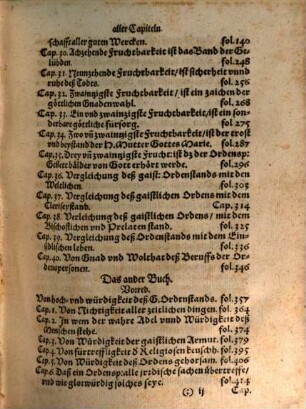 aller Capiteln
schafft aller guten Wercken. fol.240
Cap. 30. Achzehende Fruchtbarkeit ist das Band der Ge-
lübden. fol.248
Cap. 31. Neunzehende Fruchtbarkeit/ ist sicherheit vnnd
ruhe deß Todts. fol.256
Cap. 32. Zwainzigste Fruchtbarkeit/ ist ein zaichen der
göttlichen Gnadenwahl. fol.268
Cap. 33. Ein vnd zwainzigste Fruchtbarkeit/ist ein son-
derbare göttliche fürsorg. fol.275
Cap. 34. Zwo vñ zwainzigste Fruchtbarkeit/ist der trost
vnd beystand der H. Mutter Gottes Marie. fol.287
Cap. 35. Drey vñ zwainzigste Frucht: ist dz der Ordensp:
Gebett bälder von Gott erhört werde. fol.296
Cap. 36. Vergleichung deß gaist: Ordenstands mit den
Weltlichen. fol.303
Cap. 37. Vergleichung deß gaistlichen Ordens mit dem
Clerisestand. Cap.314
Cap. 38. Verleichung deß gaistlichen Ordens/ mit dem
Bischofflichen vnd Prelaten stand. fol.325
Cap. 39. Vergleichung deß Ordenstands mit dem Ein-
sidlischen leben. fol.336
Cap. 40. Von Gnad vnd Wolthat deß Beruffs der Or-
denspersonen. fol.346
Das ander Buch.
Vorred.
Von hoch- vnd würdigkeit deß G. Ordenstands. fol.357
Cap. 1. Von Nichtigkeit aller zeitlichen dingen. fol.364
Cap. 2. In wem der wahre Adel vnnd Würdigkeit deß
Menschen stehe. fol.374
Cap. 3. Von Würdigkeit der gaistlichen Armut. fol.379
Cap. 4. Von fürtreffligkeit d Religiosen keusch. fol.395
Cap. 5. Von Würdigkeit deß Ordens gehorsam. fol.404
Cap. 6. Daß ein Ordensp: alle jrrdische sachen übertreffe/
vnd wie glorwürdig solches seye. fol.414
(:) ij Cap.